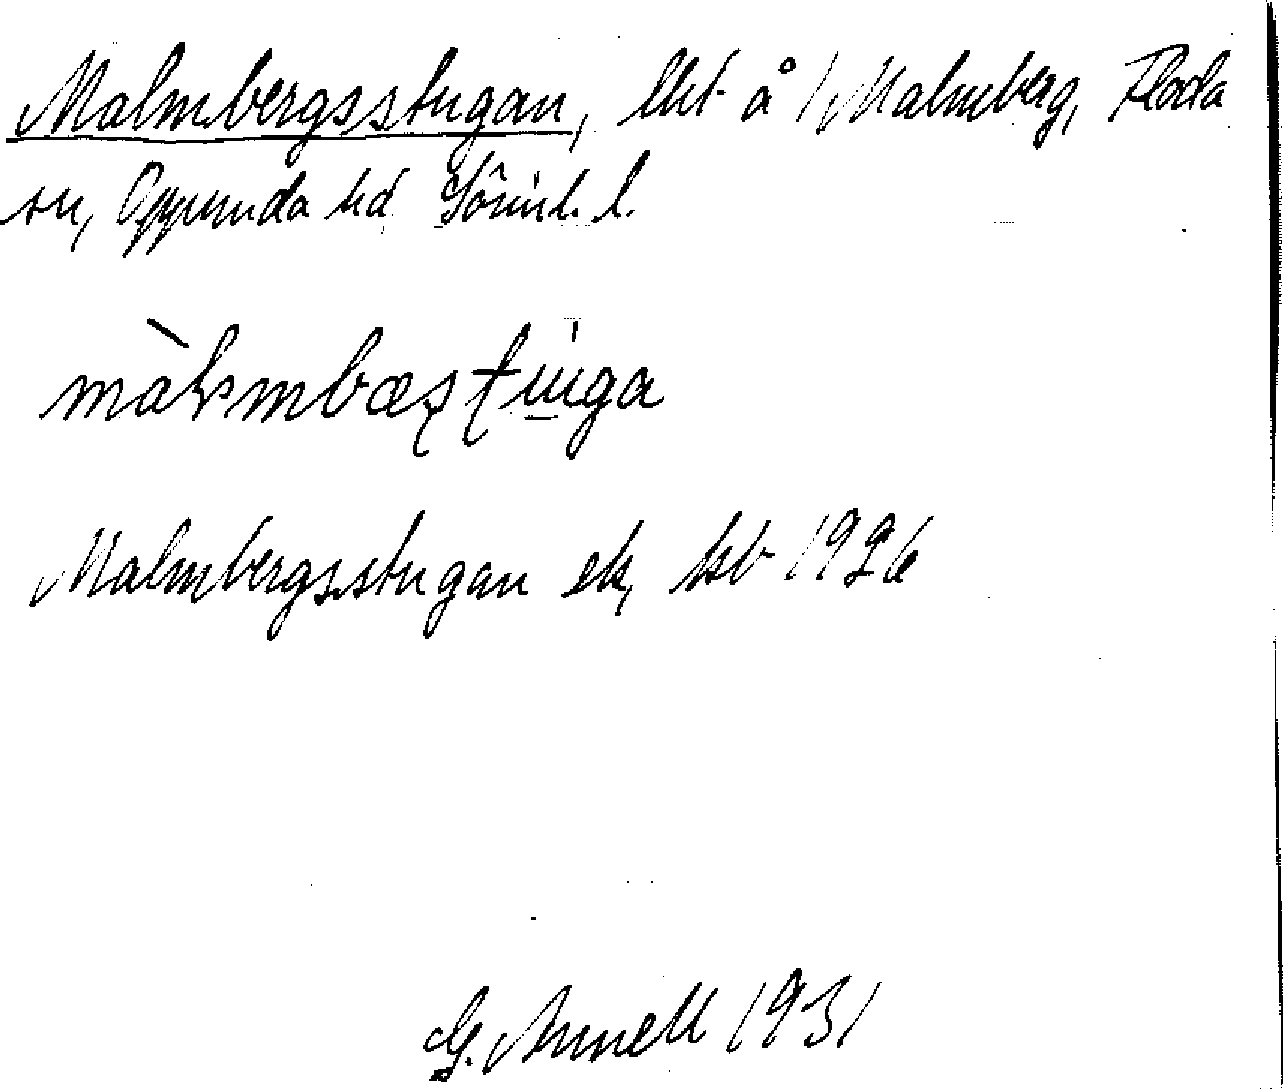 Malmbergsstugan, lht å 1/1 Malmberg, Floda
sn, Oppunda hd Sörml. l.
màlmbæʂʈɯ́ga
Malmbergsstugan ek, kb 1926
G. Annell 1931